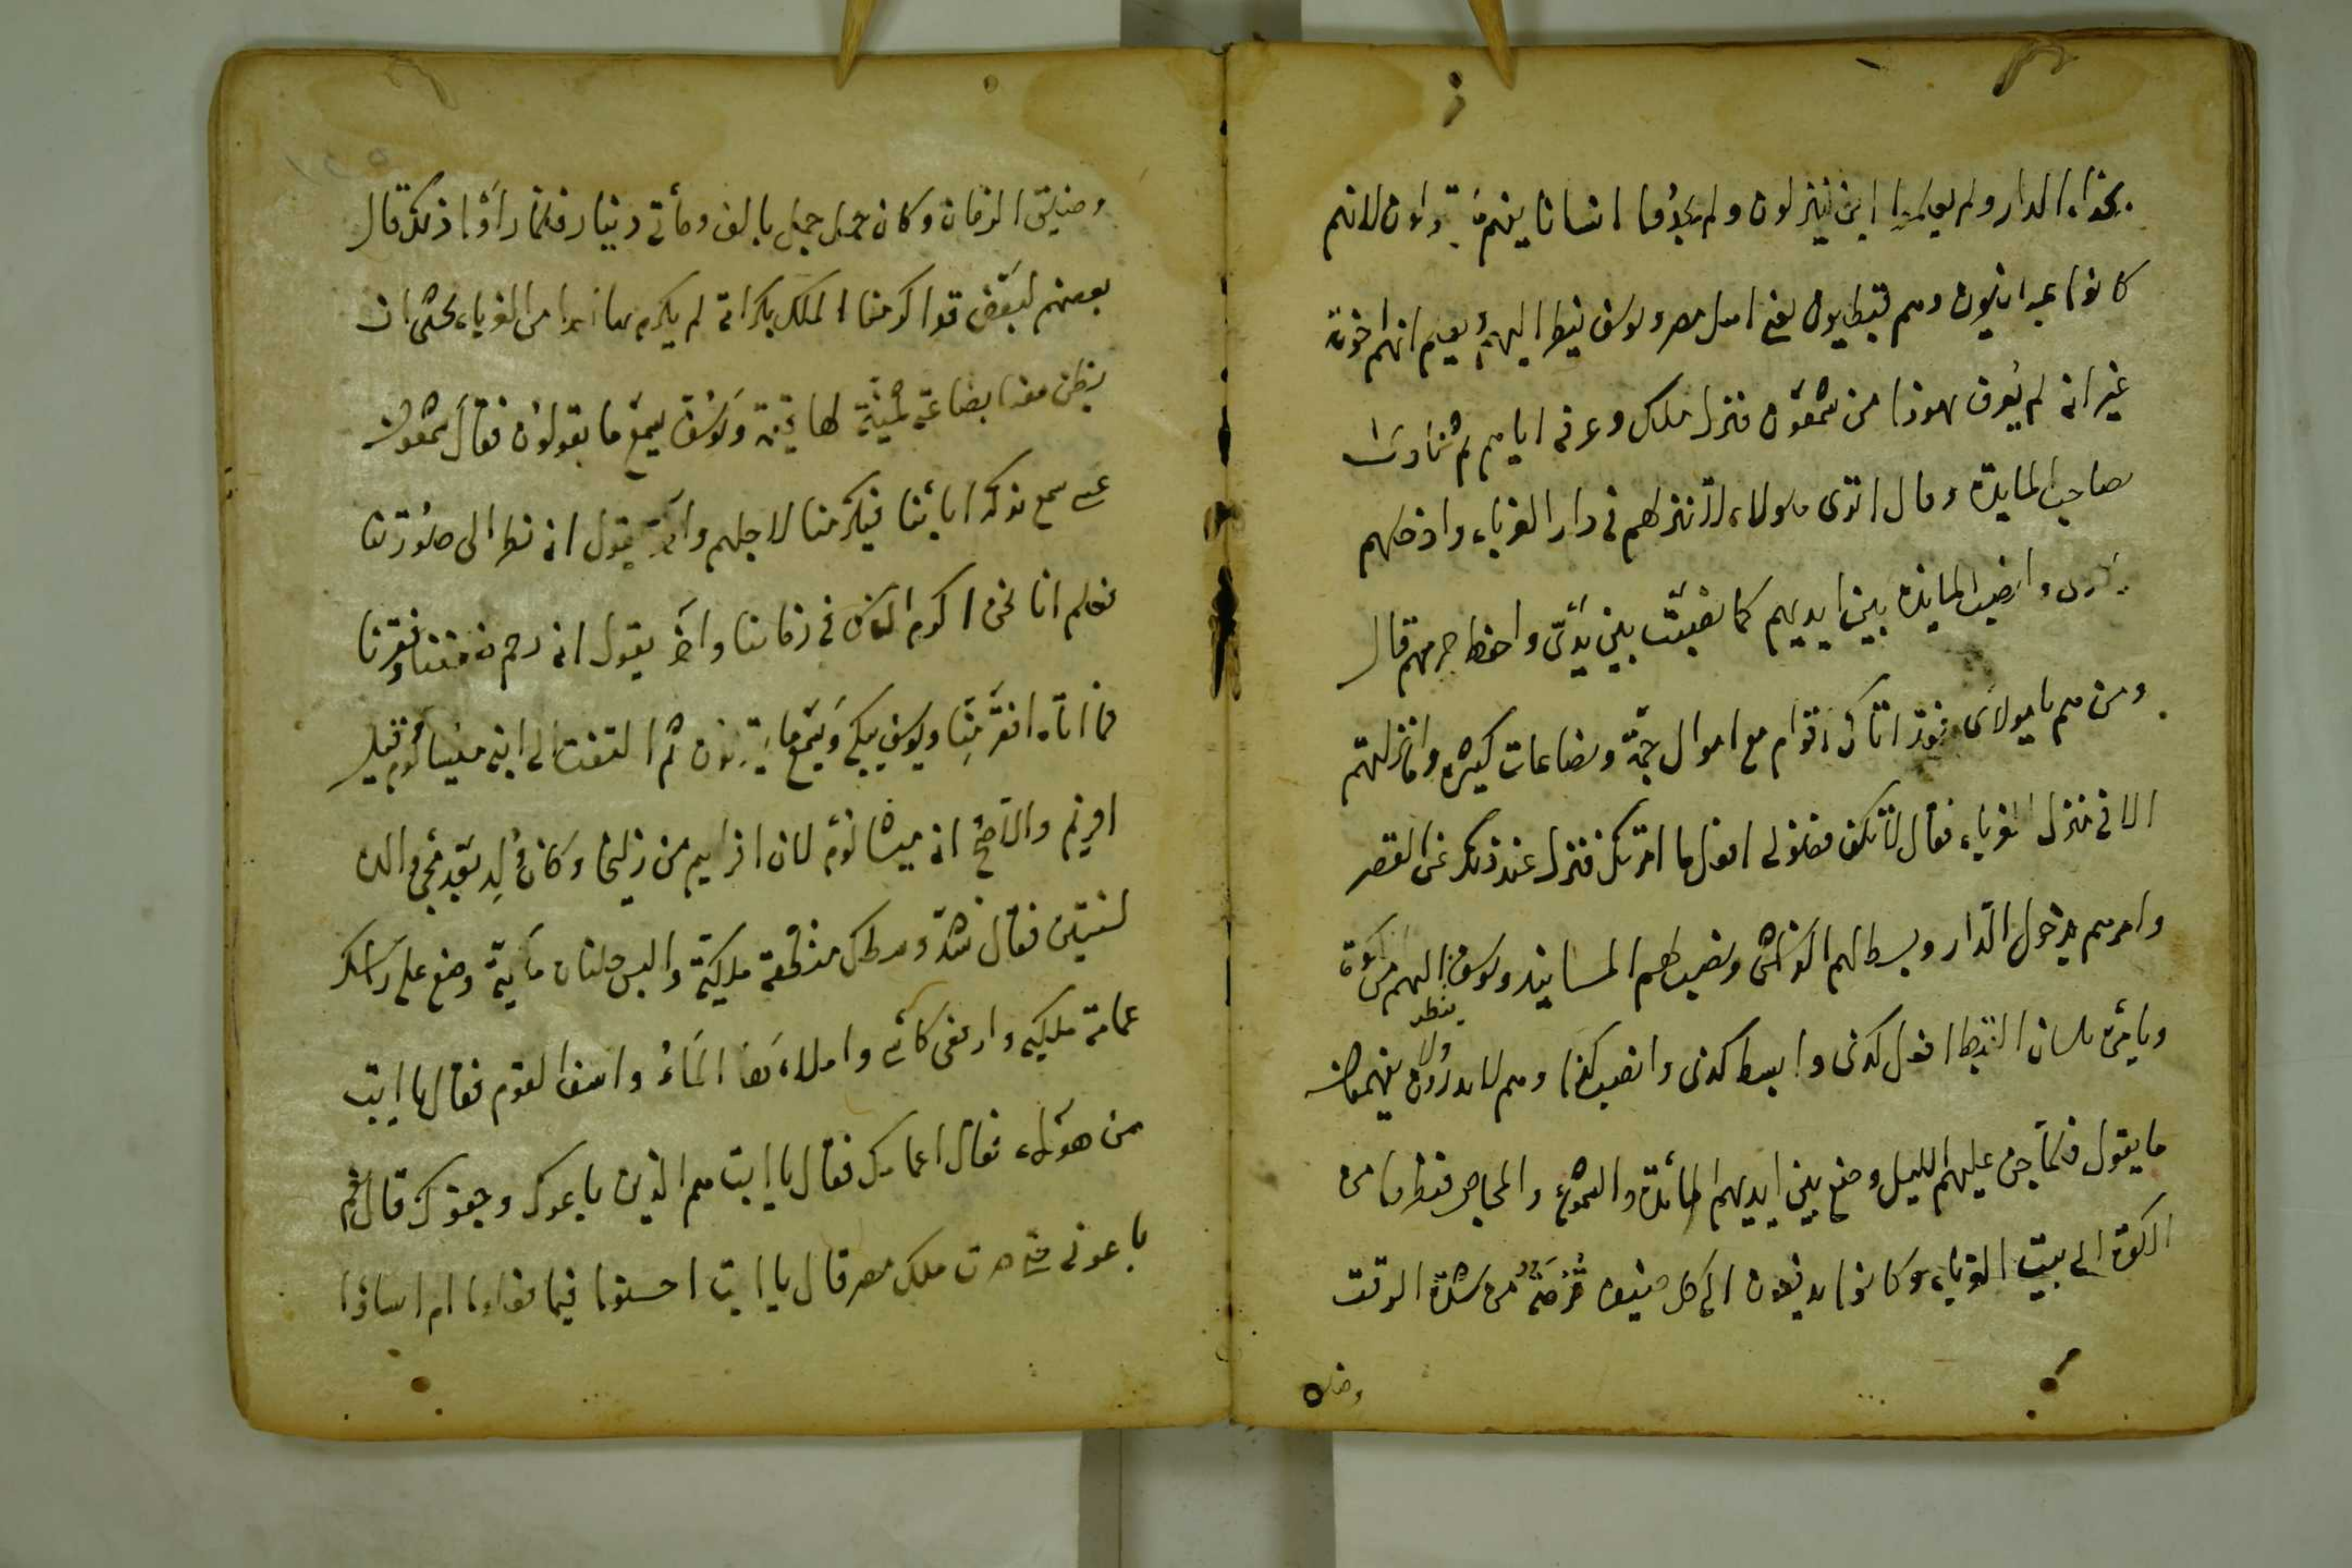 بحذاء الدار ولم يعلموا اين ينزلون ولم يجدوا انسانا يفهم ما يقولون لانهم
كانوا عبرانيون وهم قبطيون يعني اهل مصر ويوسف ينظر اليهم ويعلم انهم اخوته
غير انه لم يعرف يهودا من شمعون فنزل ملك وعرفه اياهم ثم نادى
صاحب المايدة وقال اترى هولاء لا تنزلهم في دار الغرباء وادخلهم
داري وانصب المايدة بين ايديهم كما نصبت بين يدي واحفظ حرمتهم قال
ومن هم يا مولاي فقد اتاك اقوام مع اموال جمة وبضاعات كثيرة وما انزلتهم
الا في منزل الغرباء فقال لا تكن فضولي افعل ما امرتك فنزل عند ذلك عن القصر
وامرهم بدخول الدار وبسط لهم الفراش ونصب لهم المسانيد ويوسف ينظر اليهم من الكوة
ويامره بلسان القبط افعل كذى وابسط كذى وانصب كذا وهم لا يدرون ولا يفهمون
ما يقول فلما جن عليهم الليل وضع بين ايديهم المائدة والشموع والمجامر فنظروا من
الكوة الى بيت الغرباء وكانوا يدفعون الى كل ضيف قرصة من شدة الوقت
وضيق
وضيق الزمان وكان حمل جمل بالف ومأتي دينار فلما راؤا ذلك قال
بعضهم لبعض قد اكرمنا الملك بكرامة لم يكرم بها احدا من الغرباء نخشى ان
يظن معنا بضاعة ثمينة لها قيمة ويوسف يسمع ما يقولون فقال شمعون
عسى سمع بذكر ابائنا فيكرمنا لاجلهم واخر يقول انه نظر الى صورتنا
فعلم انا نحن اكرم الناس في زماننا واخر يقول انه رحم ضعفنا وفقرنا
فما اتاه افقر منا ويوسف يبكي ويسمع ما يقولون ثم التفت الى ابنه ميشالوم قيل
افريم والاصح انه ميشالوم لان افرايم من زليخا وكان ولد بعد مجيء والده
لسنتين فقال شد وسطك منطقة ملكية والبس حلتان مأية وضع على راسك
عمامة ملكية وارفعي كأسي واملاء بها الماء واسق القوم فقال يا ابت
من هؤلاء فقال اعمامك فقال يا ابت هم الذين باعوك وجفوك قال نعم
باعوني حتى صرت ملك مصر قال يا ابت احسنوا فيما فعلوا ام اساؤا